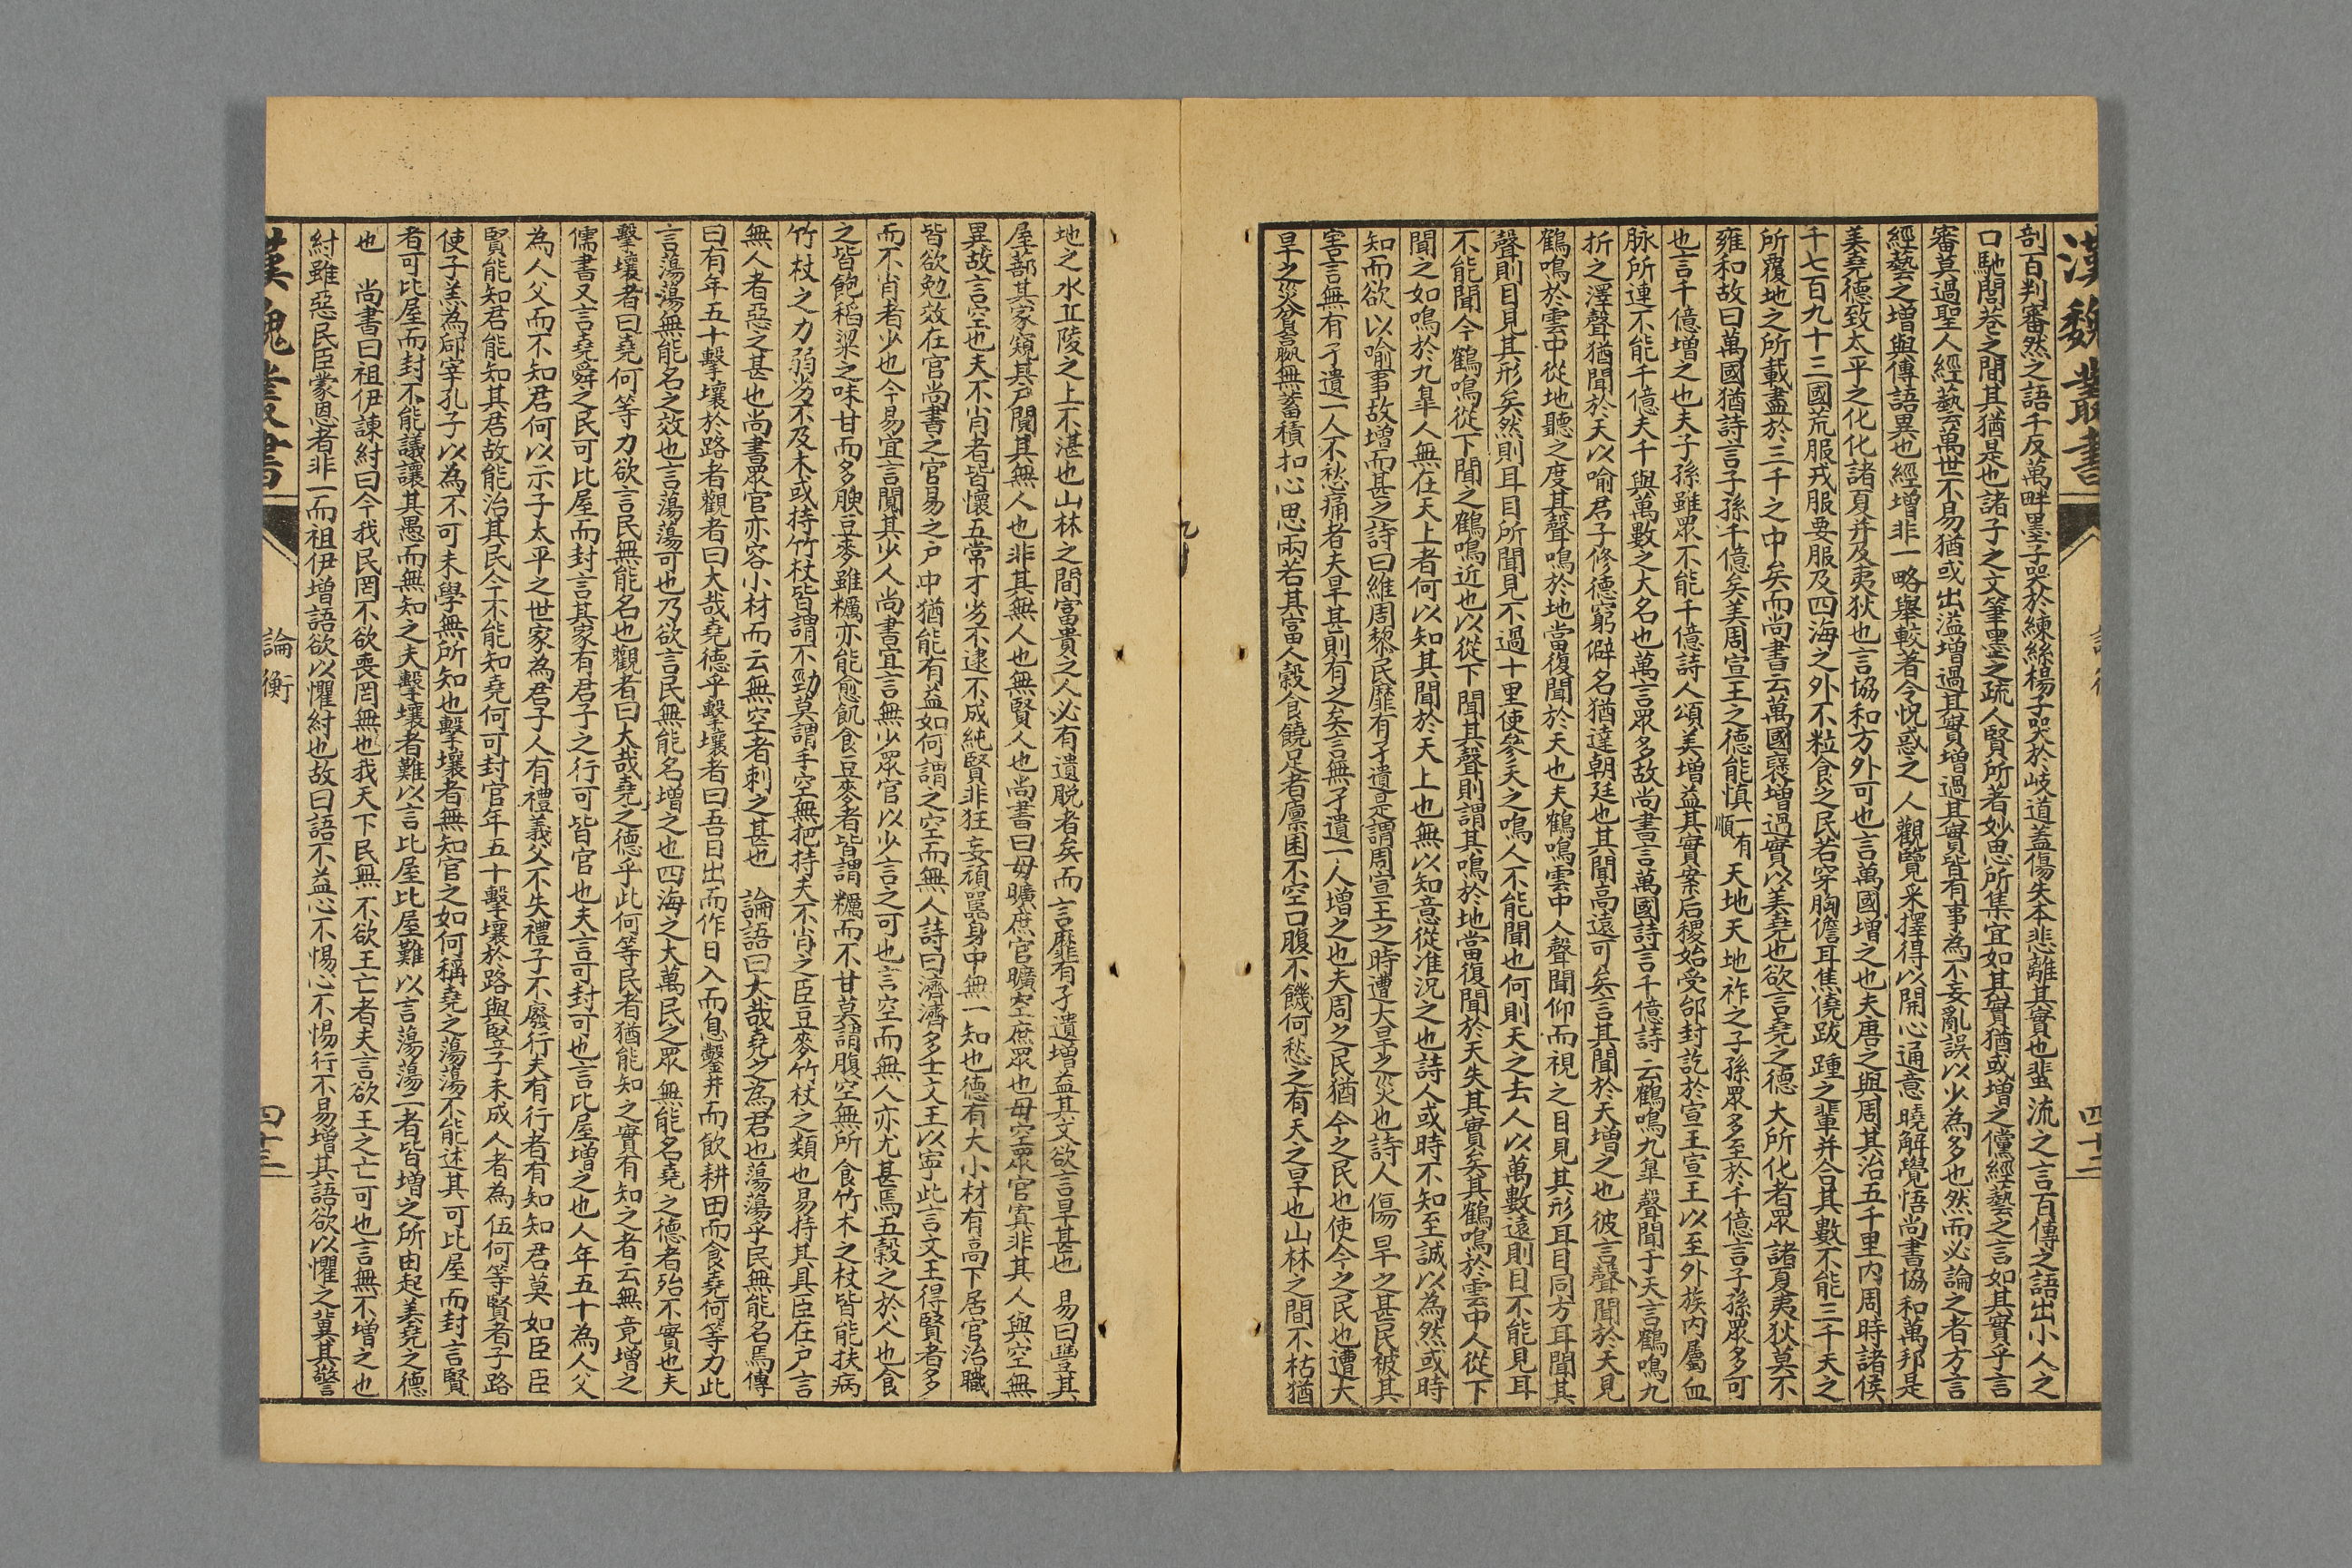 漢魏叢書
四十二
剖百判審然之語千反萬畔墨子哭於練絲楊子哭於岐道蓋傷失本悲離其實也蜚流之言百傳之語出小人之
口馳閭巷之間其猶是也諸子之文筆墨之疏人賢所著妙思所集宜如其實猶或增之儻經藝之言如其實乎言
審莫過聖人經藝萬世不易猶或出溢增過其實增過其實皆有事為不妄亂誤以少為多也然而必論之者方言
經藝之增與傳語異也經增非一略舉較著令怳惑之人觀覽采擇得以開心通意曉解覺悟尚書協和萬邦是
美堯德致太平之化化諸夏并及夷狄也言協和方外可也言萬國增之也夫唐之與周其治五千里內周時諸侯
千七百九十三國荒服戎服要服及四海之外不粒食之民若穿胸儋耳焦僥跋踵之輩并合其數不能三千天之
所覆地之所載盡於三千之中矣而尚書云萬國褒增過實以美堯也欲言堯之德大所化者眾諸夏夷狄莫不
雍和故曰萬國猶詩言子孫千億矣美周宣王之德能慎一有順天地天地祚之子孫眾多至於千億言子孫眾多可
也言千億增之也夫子孫雖眾不能千億詩人頌美增益其實案后稷始受邰封訖於宣王宣王以至外族內屬血
脉所連不能千億夫千與萬數之大名也萬言眾多故尚書言萬國詩言千億詩云鶴鳴九皐聲聞于天言鶴鳴九
折之澤聲猶聞於天以喻君子修德窮僻名猶達朝廷也其聞高遠可矣言其聞於天增之也彼言聲聞於天見
鶴鳴於雲中從地聽之度其聲鳴於地當復聞於天也夫鶴鳴雲中人聲聞仰而視之目見其形耳目同方耳聞其
聲則目見其形矣然則耳目所聞見不過十里使參天之鳴人不能聞也何則天之去人以萬數遠則目不能見耳
不能聞今鶴鳴從下聞之鶴鳴近也以從下聞其聲則謂其鳴於地當復聞於天失其實矣其鶴鳴於雲中人從下
聞之如鳴於九皐人無在天上者何以知其聞於天上也無以知意從准況之也詩人或時不知至誠以為然或時
知而欲以喻事故增而甚之詩曰維周黎民靡有孑遺是謂周宣王之時遭大旱之災也詩人傷旱之甚民被其
害言無有孑遺一人不愁痛者夫旱甚則有之矣言無孑遺一人增之也夫周之民猶今之民也使今之民也遭大
旱之災貧羸無蓄積扣心思雨若其富人穀食饒足者廩囷不空口腹不饑何愁之有天之旱也山林之間不枯猶
地之水丘陵之上不湛也山林之間富貴之人必有遺脫者矣而言靡有孑遺增益其文欲言旱甚也　易曰豐其
屋蔀其家窺其戶闃其無人也非其無人也無賢人也尚書曰毋曠庶官曠空庶眾也毋空眾官寘非其人與空無
異故言空也夫不肖者皆懷五常才劣不逮不成純賢非狂妄頑嚚身中無一知也德有大小材有高下居官治職
皆欲勉效在官尚書之官易之戶中猶能有益如何謂之空而無人詩曰濟濟多士文王以寧此言文王得賢者多
而不肖者少也今易宜言闃其少人尚書宜言無少眾官以少言之可也言空而無人亦尤甚焉五穀之於人也食
之皆飽稻粱之味甘而多腴豆麥雖糲亦能愈飢食豆麥者皆謂糲而不甘莫謂腹空無所食竹木之杖皆能扶病
竹杖之力弱劣不及木或持竹杖皆謂不勁莫謂手空無把持夫不肖之臣豆麥竹杖之類也易持其具臣在戶言
無人者惡之甚也尚書眾官亦容小材而云無空者刺之甚也　論語曰大哉堯之為君也蕩蕩乎民無能名焉傳
曰有年五十擊壤於路者觀者曰大哉堯德乎擊壤者曰吾日出而作日入而息鑿井而飲耕田而食堯何等力此
言蕩蕩無能名之效也言蕩蕩可也乃欲言民無能名增之也四海之大萬民之眾無能名堯之德者殆不實也夫
擊壤者曰堯何等力欲言民無能名也觀者曰大哉堯之德乎此何等民者猶能知之實有知之者云無竟增之
儒書又言堯舜之民可比屋而封言其家有君子之行可皆官也夫言可封可也言比屋增之也人年五十為人父
為人父而不知君何以示子太平之世家為君子人有禮義父不失禮子不廢行夫有行者有知知君莫如臣臣
賢能知君能知其君故能治其民今不能知堯何可封官年五十擊壤於路與豎子未成人者為伍何等賢者子路
使子羔為郈宰孔子以為不可未學無所知也擊壤者無知官之如何稱堯之蕩蕩不能述其可比屋而封言賢
者可比屋而封不能議讓其愚而無知之夫擊壤者難以言比屋比屋難以言蕩蕩二者皆增之所由起美堯之德
也　尚書曰祖伊諫紂曰今我民罔不欲喪罔無也我天下民無不欲王亡者夫言欲王之亡可也言無不增之也
紂雖惡民臣蒙恩者非一而祖伊增語欲以懼紂也故曰語不益心不惕心不惕行不易增其語欲以懼之冀其警
漢魏叢書
論衡
四十三